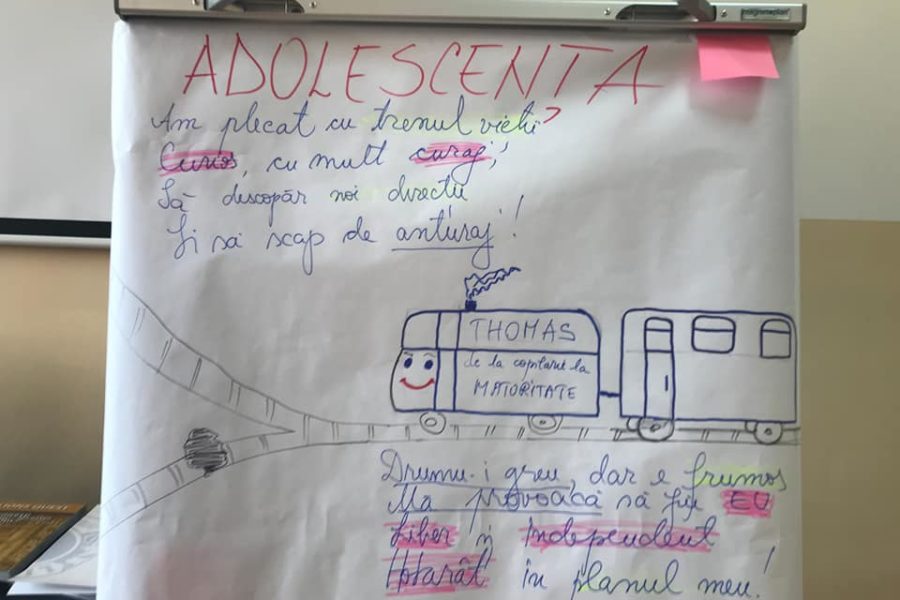 ADOLESCENTA
Am plecat cu trenul vechi
Curios, cu mult curaj,
Să descopăr noi direcții
Și să scap de anturaj!
THOMAS
de la copilărie la
MATORITATE
Drumu-i greu, dar e frumos
Mă provoacă să fiu EU
Liber și independent
Hotărât în planul meu!